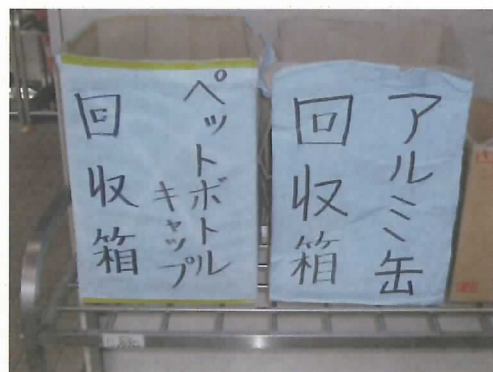 ペットボトル
キャップ
回収箱
アルミ缶
回収箱